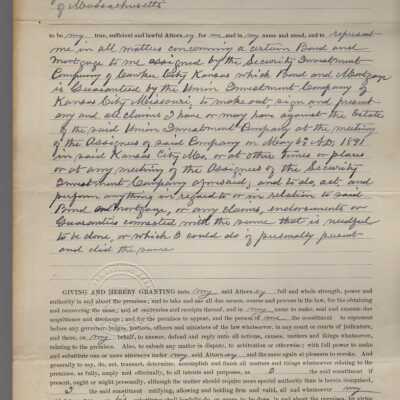 of Massachusetts
to be my true, sufficient and lawful Attorney for me and in my name and stead, and to represent
me in all matters concerning a certain Bond and
Mortgage to me assigned by the Security Investment
Company of Cawker City Kansas which Bond and Mortgage
is Guaranteed by the Union Investment Company of
Kansas City Missouri, to make out, sign and present
any and all claims I have or may have against the Estate
of the said Union Investment Company at the meeting
of the Assignees of said Company on May A.D. 1891
in said Kansas City Mo. or at other times or places
or at any meeting of the Assignees of the Security
Investment Company aforesaid; and to do, act, and
perform anything in regard to or in relation to said
Bond and mortgage, or any claims, endorsements or
Guaranties connected with the same that is needful
to be done, or which I could do if personally present
and did the same
GIVING AND HEREBY GRANTING unto my said Attorney full and whole strength, power and
authority in and about the premises; and to take and use all due means, course and process in the law, for the obtaining
and recovering the same; and of recoveries and receipts thereof, and in my name to make, seal and execute due
acquittance and discharge; and for the premises to appear, and the person of me the constituent to represent
before any governor, judges, justices, officers and ministers of the law whatsoever, in any court or courts of judicature,
and there, on my behalf, to answer, defend and reply unto all actions, causes, matters and things whatsoever,
relating to the premises. Also, to submit any matter in dispute, to arbitration or otherwise; with full power to make
and substitute one or more attorneys under my said Attorney and the same again at pleasure to revoke. And
generally to say, do, act, transact, determine, accomplish and finish all matters and things whatsoever relating to the
premises, as fully, amply and effectually, to all intents and purposes, as I the said constituent if
present, ought or might personally, although the matter should require more special authority than is herein comprised,
I the said constituent ratifying, allowing and holding firm and valid, all and whatsoever my